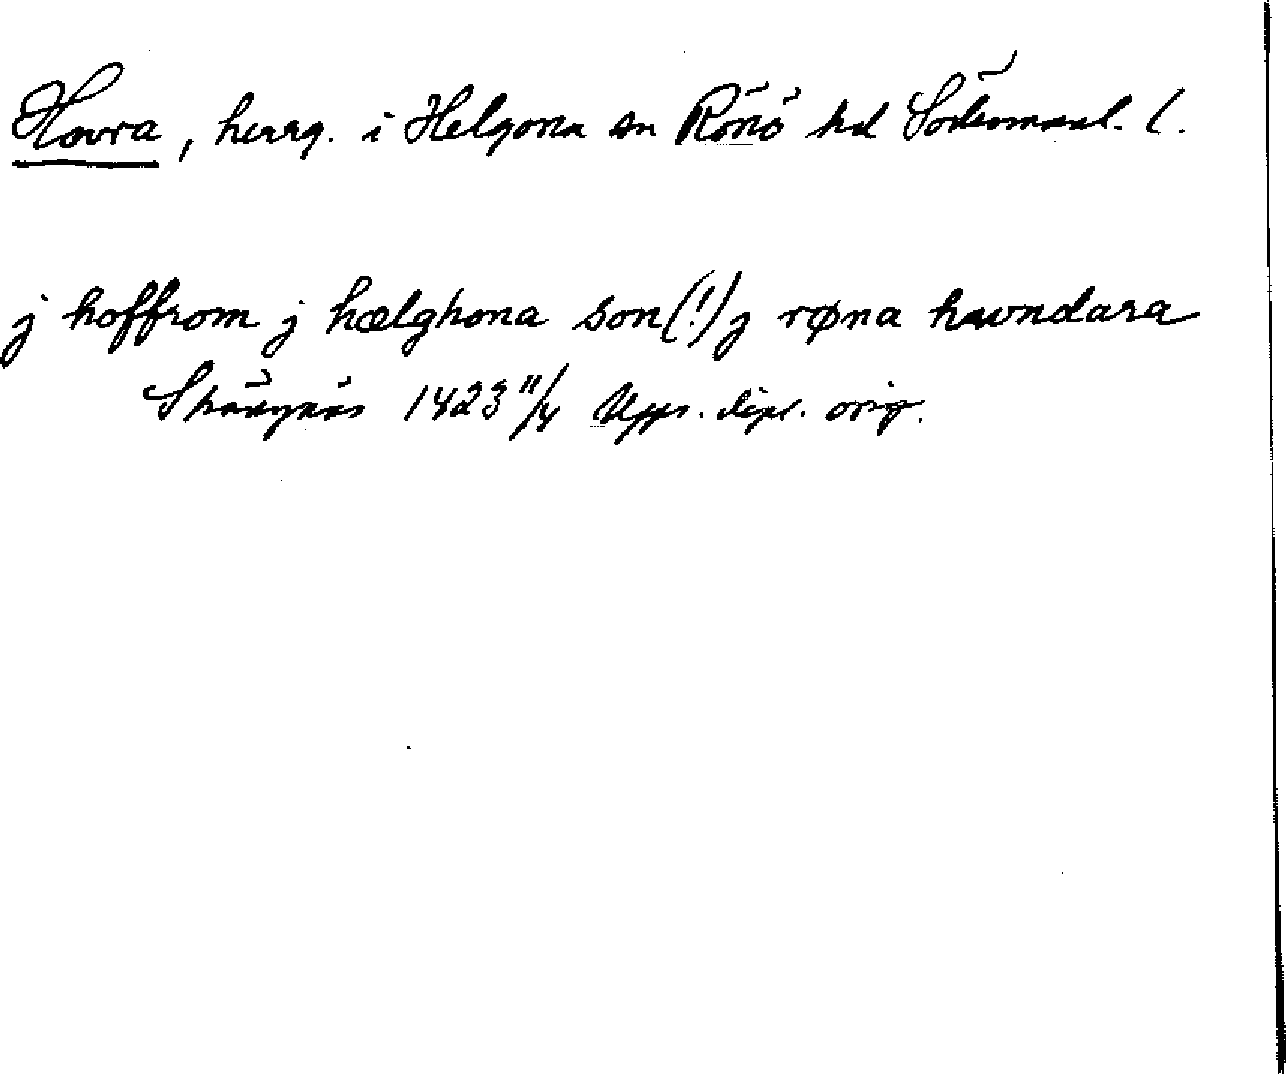 Hovra, herrg. i Helgona sn Rönö hd Södermanl. l.
j hoffrom j hælghona son(!) j røna hwndara
Strängnäs 1423 11/4 Upps. dipl. orig.